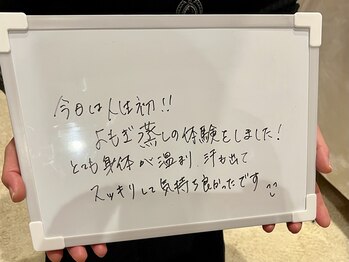 今日は人生初!!
よもぎ蒸しの体験をしました!
とても身体が温まり、汗も出て
スッキリして気持ち良かったです